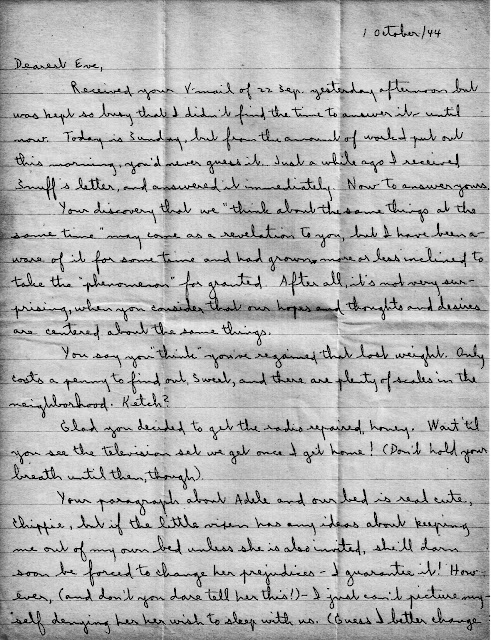 1 October/44
Dearest Eve,
Received your V-mail of 22 Sep. yesterday afternoon but
was kept so busy that I didn't find the time to answer it until
now. Today is Sunday, but from the amount of work I put out
this morning, you'd never guess it. Just a while ago I received
Snuff's letter, and answered it immediately. Now to answer yours.
Your discovery that we "think about the same things at the
same time" may come as a revelation to you, but I have been a-
ware of it for some time and had grown more or less inclined to
take the "phenomenon" for granted. After all, it's not very sur-
prising, when you consider that our hopes and thoughts and desires
are centered about the same things.
You say you "think" you've regained that lost weight. Only
costs a penny to find out, Sweet, and there are plenty of scales in the
neighborhood. Ketch?
Glad you decided to get the radio repaired, honey. Wait 'til
you see the television set we get once I git home! (Don't hold your
breath until then, though)
Your paragraph about Adele and our bed is real cute,
Chippie, but if the little vixen has any ideas about keeping
me out of my own bed unless she is also invited, she'll darn
soon be forced to change her prejudices - I guarantee it! How-
ever, (and don't you dare tell her this!) - I just can't picture my-
self denying her her wish to sleep with us. (Guess I better change